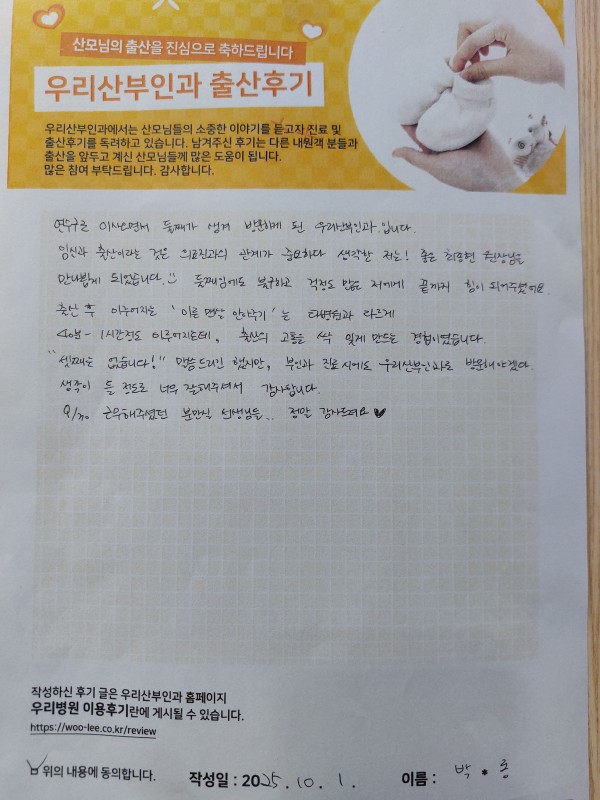 산모님의 출산을 진심으로 축하드립니다
우리산부인과 출산후기
우리산부인과에서는 산모님들의 소중한 이야기를 듣고자 진료 및
출산후기를 독려하고 있습니다. 남겨주신 후기는 다른 내원객 분들과
출산을 앞두고 계신 산모님들께 많은 도움이 됩니다.
많은 참여 부탁드립니다. 감사합니다.
연수구로 이사오면서 둘째가 생겨 방문하게 된 우리산부인과 입니다.
임신과 출산이라는 것은 의료진과의 관계가 중요하다 생각한 저는! 좋은 원장님을
만나뵙게 되었습니다. 둘째임에도 불구하고 걱정도 많은 저에게 끝까지 힘이 되어주셨어요
출산 후 이루어지는 '이른 맨살 안아주기'는 타병원과 다르게
40분-1시간정도 이루어지는데, 출산의 고통을 싹 잊게 만드는 경험이였습니다.
"셋째는 없습니다!" 말씀드리긴 했지만, 부인과 진료시에도 우리산부인과로 방문해야겠다.
생각이 들 정도로 너무 잘해주셔서 감사합니다.
9/30 근무해주셨던 분만실 선생님들.. 정말 감사드려요♥
작성하신 후기 글은 우리산부인과 홈페이지
우리병원 이용후기란에 게시될 수 있습니다.
https://woo-lee.co.kr/review
위의 내용에 동의합니다. 작성일 : 2025.10.1. 이름 : 박*롱